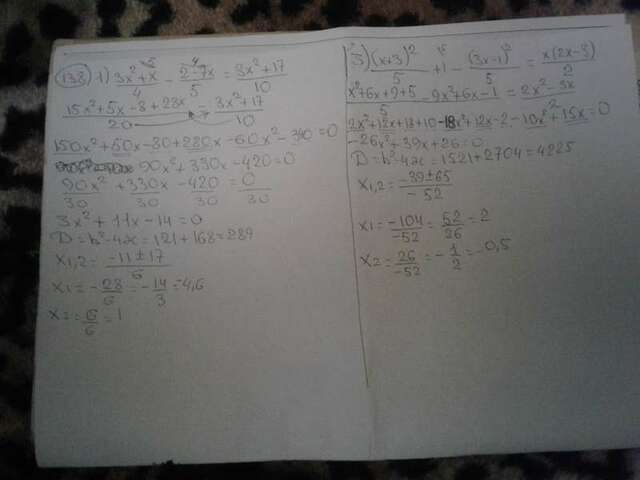 138 1) 3x²+x/4 - 2-7x/5 = 3x²+17/10
15x²+5x-8+28x/20 = 3x²+17/10
150x²+50x-80+280x-60x²-340=0
90x²+330x-420=0
90x²/30 + 330x/30 - 420/30 = 0/30
3x²+11x-14=0
D=b²-4ac=121+168=289
x1,2= -11±17/6
x1= -28/6 = -14/3 = 4,6
x2= 6/6 = 1
3) (x+3)²/5 +1 - (3x-1)²/5 = x(2x-3)/2
x²+6x+9+5-9x²+6x-1/5 = 2x²-3x/2
2x²+12x+18+10-18x²+12x-2-10x²+15x=0
-26x²+39x+26=0
D=b²-4ac=1521+2704=4225
x1,2= -39±65/-52
x1= -104/-52 = 52/26 = 2
x2= 26/-52 = -1/2 = -0,5